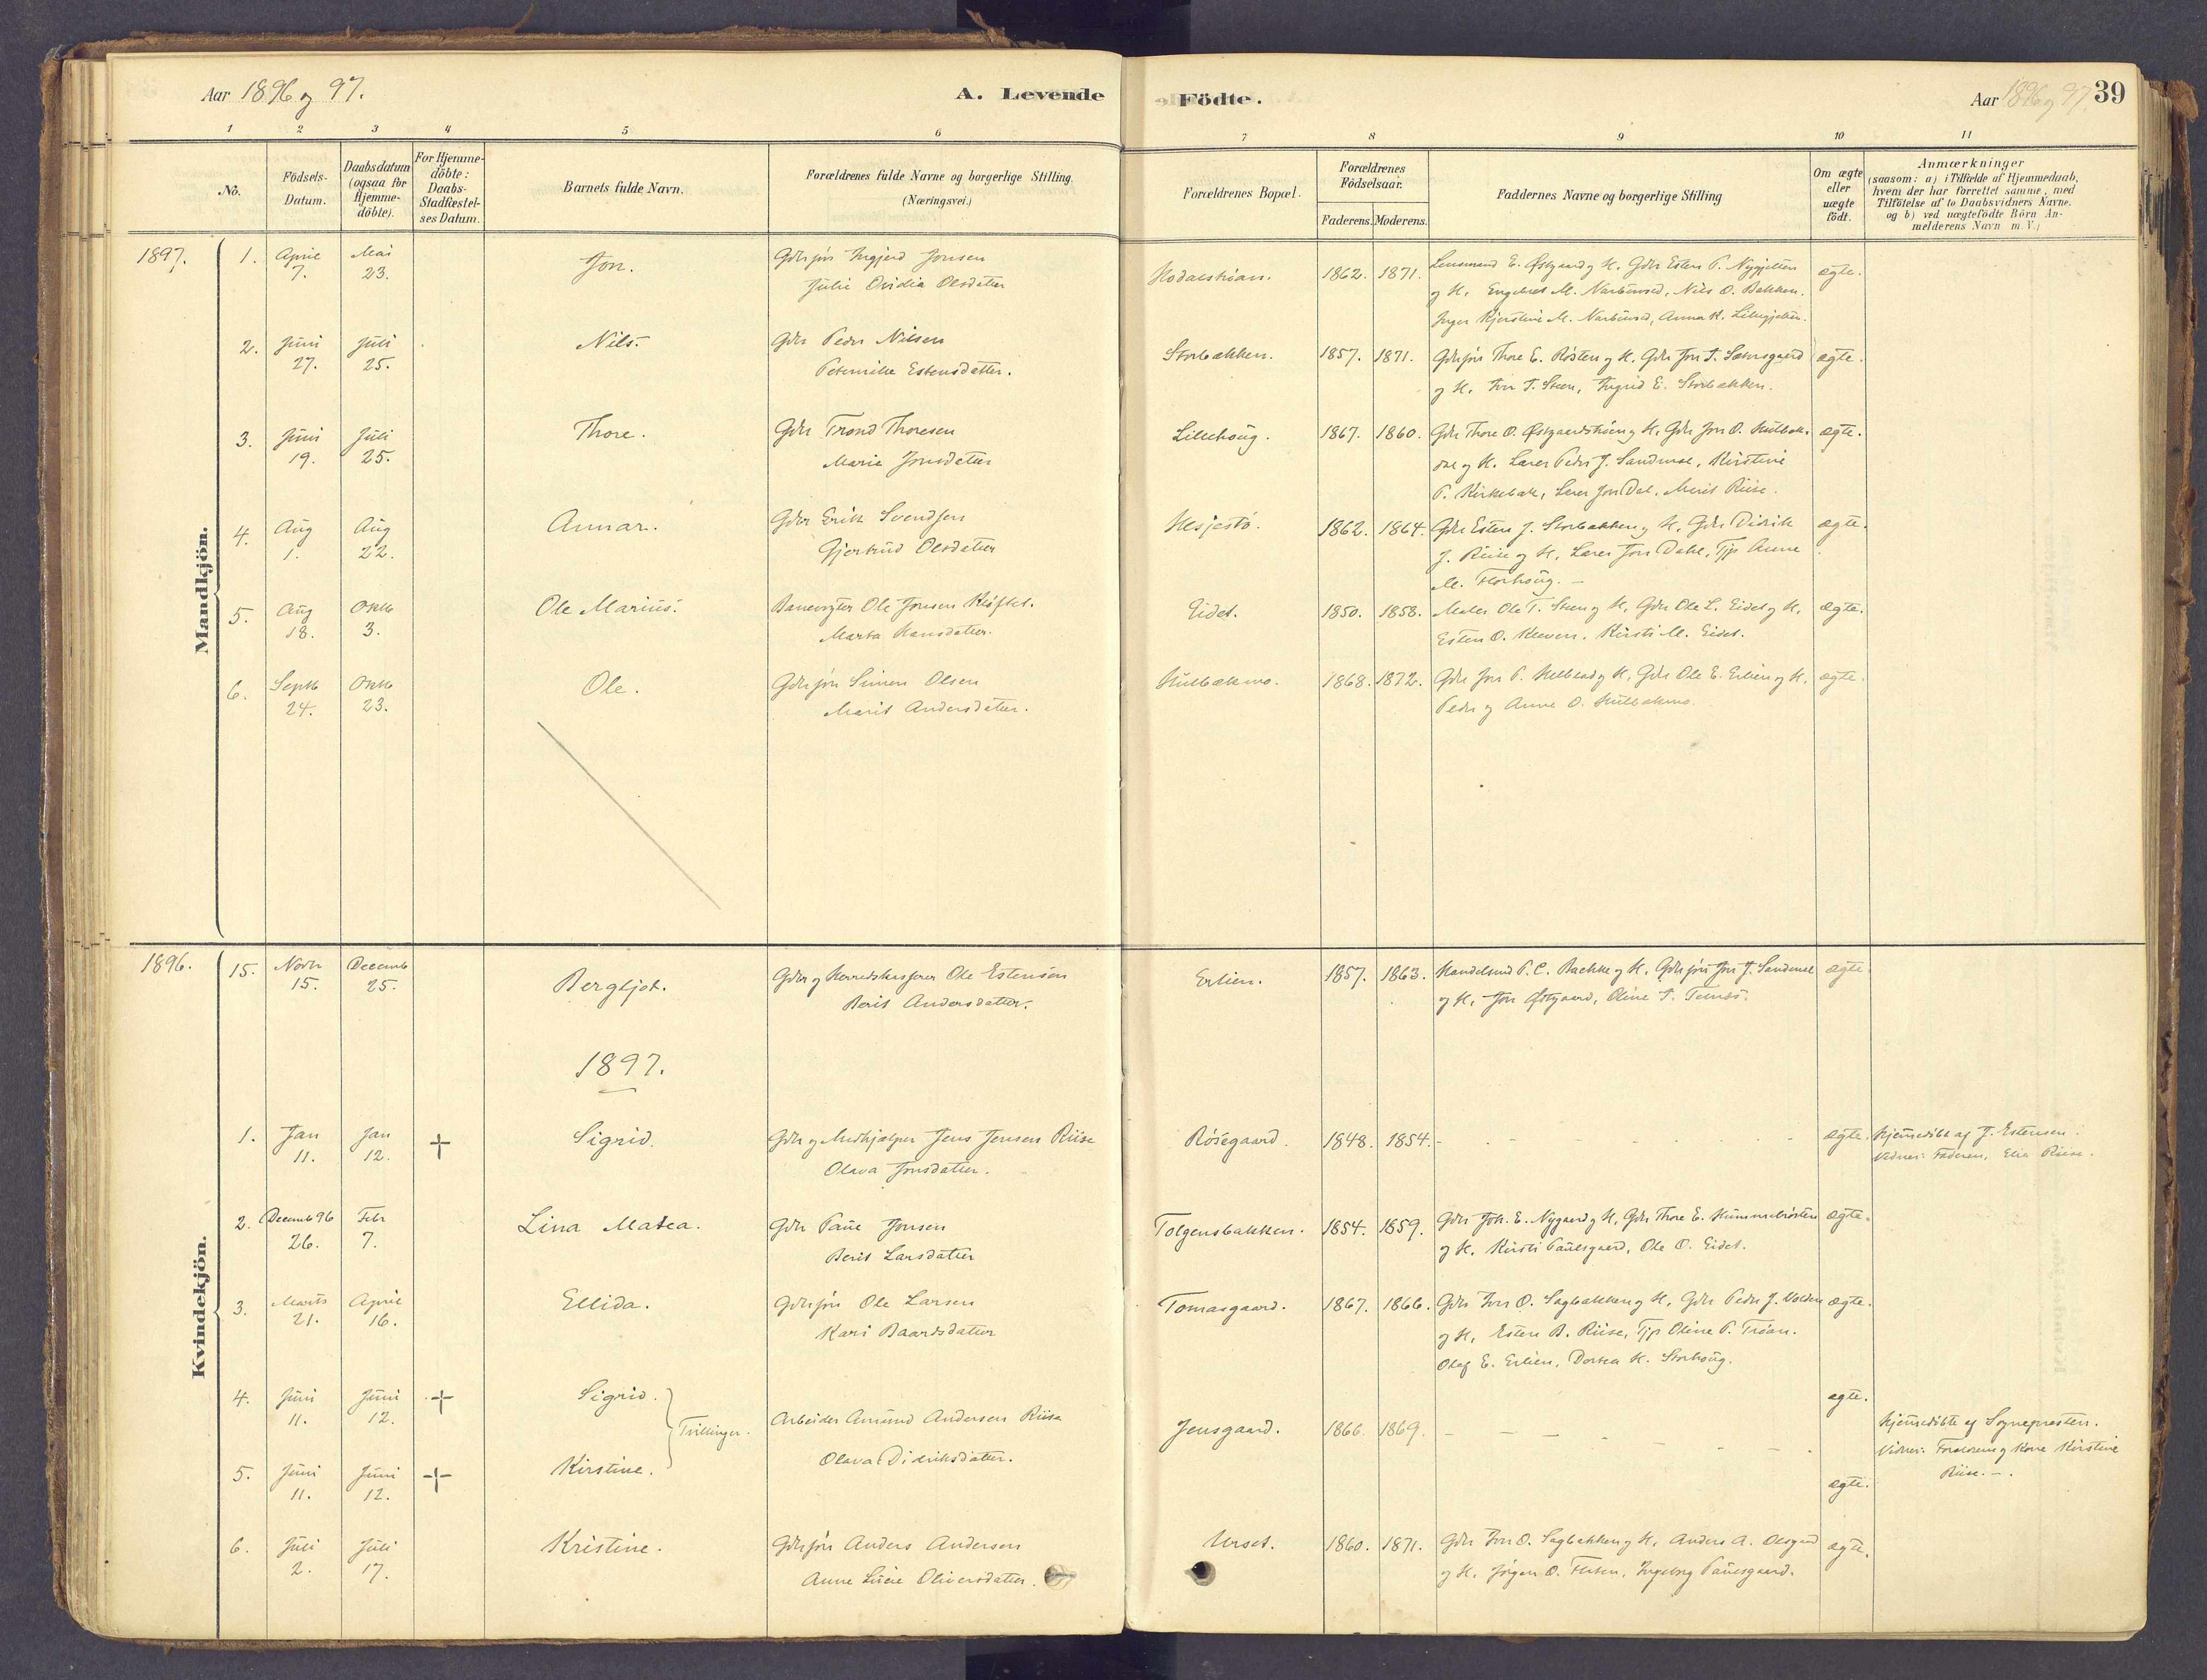 Aar 1896 og 97.
A. Levende Födte.
Aar 1896 og 97. 39
1 2 3 4 5 6 7 8 9 10 11
No.
Födsels-
Datum.
Daabsdatum
(ogsaa for
Hjemme-
döbte).
For Hjemme-
döbte:
Daabs-
Stadfæstel-
ses Datum.
Barnets fulde Navn.
Forældrenes fulde Navne og borgerlige Stilling.
(Næringsvei.)
Forældrenes Bopæl.
Forældrenes
Födselsaar.
Faderens. Moderens.
Faddernes Navne og borgerlige Stilling
Om ægte
eller
uægte
födt.
Anmærkninger
(saasom: a) i Tilfælde af Hjemmedaab,
hvem der har forrettet samme, med
Tilföielse af to Daabsvidners Navne.
og b) ved uægtefödte Börn An-
melderens Navn m. V.)
Mandkjön.
1897. 1. April Mai Jon. Ingjerd Jonsen 1862. 1871. Lensmand E. Østgaard og K. Esten P. ægte.
7. 23. Julie Ovidia Olsdatter og K. Engebret M. Narbuvoed, Nils O. Bakken.
Inger Kjerstine M. Narbuvoed, Anna K.
2. Juni Juli Nils. Gdr Peder Nilsen Storbækken. 1857. 1871. Thore E. Røsten og K. Gdr Jon T. og K. ægte.
27. 25. Peternille Estensdatter. Storbækken.
3. Juni Juli Thore. Gdr Trond Thoresen Lillehoug. 1867. 1860. Gdr Thore O. og K. Gdr Jon O. ægte.
19. 25. Marie Jonsdatter og K. Lærer Peder J. Sandmæl, Kirstine
P. Kirkebæk, Lærer Jon Dal, Marit Riise.
4. Aug Aug Annar. Gdr Erik Svendsen Hesjestø. 1862. 1864. Gdr Esten J. Storbækken og K, Gdr Didrik ægte.
1. 22. Gjertrud Olsdatter J. Riise og K, Lærer Jon Dahl, Tjp Anne
M. Florhoug. –
5. Aug Oktb Ole Marius. Banevogter Ole Jonsen Kløftet. Eidet. 1850. 1858. Maler Ole T. Steen og K, Gdr Ole L. Eidet og K, ægte.
18. 3. Marta Hansdatter. Esten O. Kleven. Kirsti M. Eidet.
6. Septb Oktb Ole. Simen Olsen Hulbækmo. 1868. 1872. Gdr Jon P. og K, Gdr Ole E. Erlien og K, ægte.
24. 23. Marit Andersdatter. Peder og Anne O. Hulbækmo.
Kvindekjön.
1896. 15. Novbr Decemb Bergljot. Gdr og Herredskasserer Ole Estensen Erlien. 1857. 1863. Handelsmd P. C. Bachke og K, Jon J. Sandmæl ægte
15. 25. Berit Andersdatter. og K, Jon Østgaard, Oline T.
1897.
1. Jan Jan + Sigrid. Gdr og Medhjælper Jens Jensen Riise Røsegaard. 1848. 1854. – – – – ægte. Hjemmedöbt af J. Estensen.
11. 12. Olava Jonsdatter. Vidner: Faderen, Riise.
2. Decemb 96 Febr Lina Matea. Gdr Paul Jonsen Tolgensbakken. 1854. 1859. Gdr Joh. E. Nygaard og K, Gdr Thore E. Hummelrøsten ægte.
26. 7. Berit Larsdatter og K. Kirsti Paulsgaard, Ole O. Eidet.
3. Marts April Ellida. Ole Larsen Tomasgaard. 1867. 1866. Gdr Iver O. Sagbakken og K, Gdr Peder J. Volden ægte.
21. 16. Kari Baardsdatter og K, Esten B. Riise, Tjp Oline P. Trøan.
Olaf E. Erlien, Dortea K. Storhoug.
4. Juni Juni + Sigrid. Trillinger. Arbeider Amund Andersen Riise Jensgaard. 1866. 1869. – – – – ægte.
11. 12. Olava Didriksdatter. Hjemmedöbte af Sognepresten.
5. Juni Juni + Kirstine. Vidner: Forældrene og Kone Kirstine
11. 12. ægte. Riise. –.
6. Juli Juli Kristine. Anders Andersen Urset. 1860. 1871. Gdr Iver O. Sagbakken og K, Anders A. ægte.
2. 17. Anne Lucie Oliversdatter. og K. Jörgen O. Ingeborg Paulsgaard.